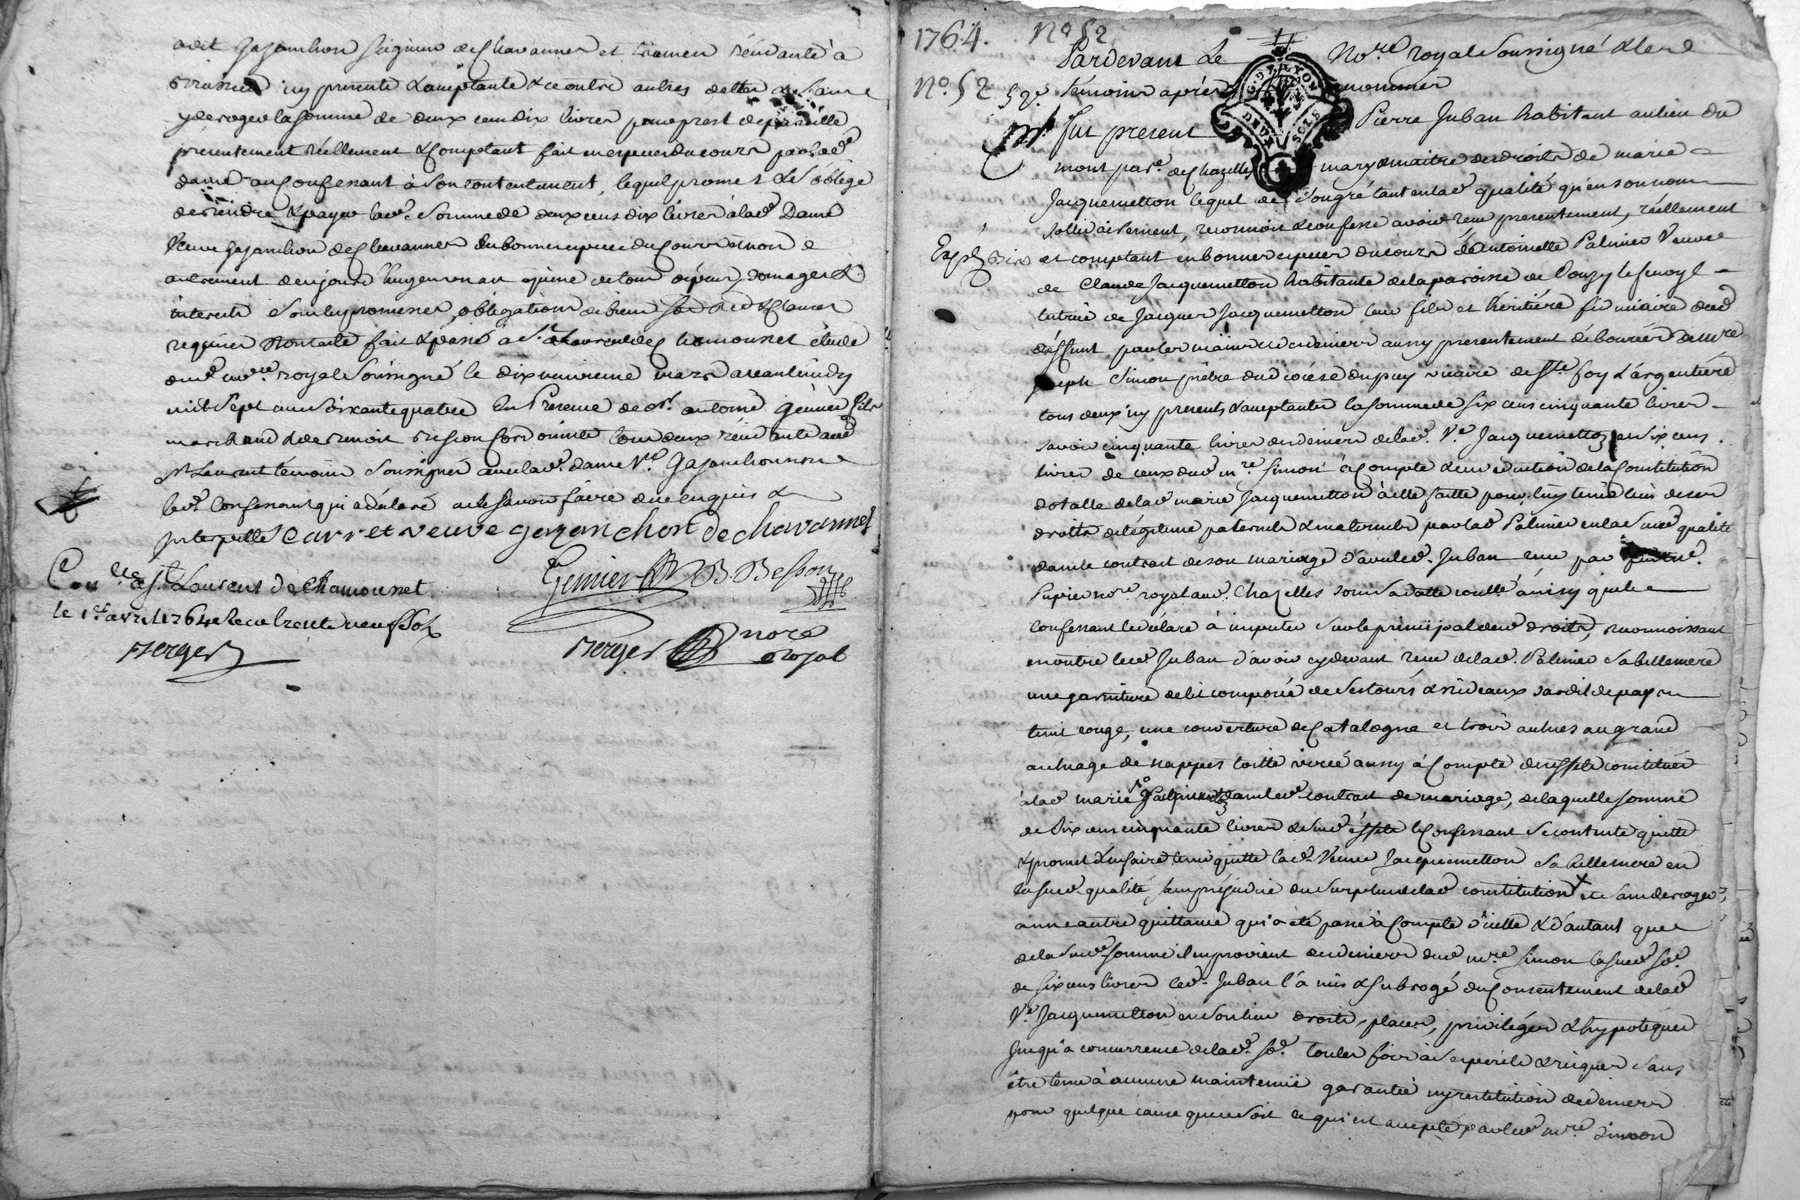 dudit Gazanchon seigneur de Chavannes et
icy presente & acceptante & ce outre autres dettes & sans
y deroger la somme de deux cens dix livres pour prest de pareille
presentement réellement & comptant fait en especes du cours par lad.e
dame au confessant à son contentement, lequel promet & s'oblige
de rendre & payer lad.e somme de deux cens dix livres à lad.e Dame
Veuve Gazanchon de Chavannes en bonnes especes du cours et non
autrement de ce jourd'huy en un an à peine de tous dépens, domages &
interests sous les promesses, obligations de biens & clauses
requises Dont acte fait & passé à S.t Laurent de Chamousset étude
dud. no.re royal soussigné le dix neuvieme mars avant midy
mil sept cens soixante quatre En Presence de s.r antoine Genier fils
marchand & de Benoit Besson cordonnier tous deux résidants aud.
S.t Laurent témoins soussignés avec lad.e dame V.e Gazanchon non
led. confessant qui a déclaré ne le savoir faire de ce enquis &
interpellé Carret veuve gazanchon de chavannes
Genier B. Besson
Con.lé à S.t Laurens de Chamousset
le 1.er avril 1764 Recu trente neuf sols
Berger
Berger nore
royal
1764. N.o 52
N.o 52
52.e
Pardevant Le No.re royal soussigné & les
témoins après nommés
fut présent Pierre Juban habitant au lieu du
mont par.se de Chazelles mary & maitre des droits de marie
Jacquemetton lequel de son gré tant en lad. qualité qu'en son nom
sollidairement, reconnoit & confesse avoir reçu presentement, réellement
Exp.
et comptant en bonnes especes du cours de antoinette Palmier Veuve
de Claude Jacquemetton habitante de la paroisse de
tutrice de Jacques Jacquemetton leur fils et héritière fiduciaire dud.
deffunt par les mains et deniers aussy presentement déboursés de m.re
Joseph Simon prêtre du diocése du puy vicaire de S.te foy L'argentière
tous deux icy presents & acceptants la somme de six cens cinquante livres
savoir cinquante livres des deniers de lad. V.e Jacquemetton et six cens
livres de ceux dud. m.re Simon à Compte & en déduction de la Constitution
dotalle de lad. marie Jacquemetton à elle faitte pour luy tenir lieu de ses
droits de légitime paternels & maternels par lad. Palmier en lad. qualité
dans le contrat de son mariage d'avec led. Juban reçu par
Pupier no.re royal aud. Chazelles sous sa datte controllé ainsy que le
confessant le déclare à imputer sur le principal desd. droits, reconnoissant
en outre led. Juban d'avoir cydevant reçu de lad. Palmier sa bellemere
une garniture de lit composée de ses tours & rideaux
teint rouge, une couverture de Catalogne et trois autres au grand
aunage de nappes toille aussy à Compte des effets constitués
à lad. marie Jacquemetton dans led. contrat de mariage, de laquelle somme
de six cens cinquante livres & desd. effets le confessant se contente quitte
& promet d'en faire tenir quitte lad. Veuve Jacquemetton sa bellemere en
sad. qualité, sans préjudice du surplus de lad. constitution et sans deroger
à une autre quittance qui a été passée à Compte d'icelle & d'autant que
de lad. somme il en provient des deniers dud. m.re Simon lad. so.e
de six cens livres led. Juban l'a mis & subrogé du Consentement de lad.
V.e Jacquemetton en son lieu droits, places, privilèges & hypoteques
jusqu'à concurrence de lad. so.e toutes fois à ses perils & risques sans
être tenu à aucune maintenue garantie ny restitution de deniers
pour quelque cause que ce soit ce qui est accepté par led. m.re Simon